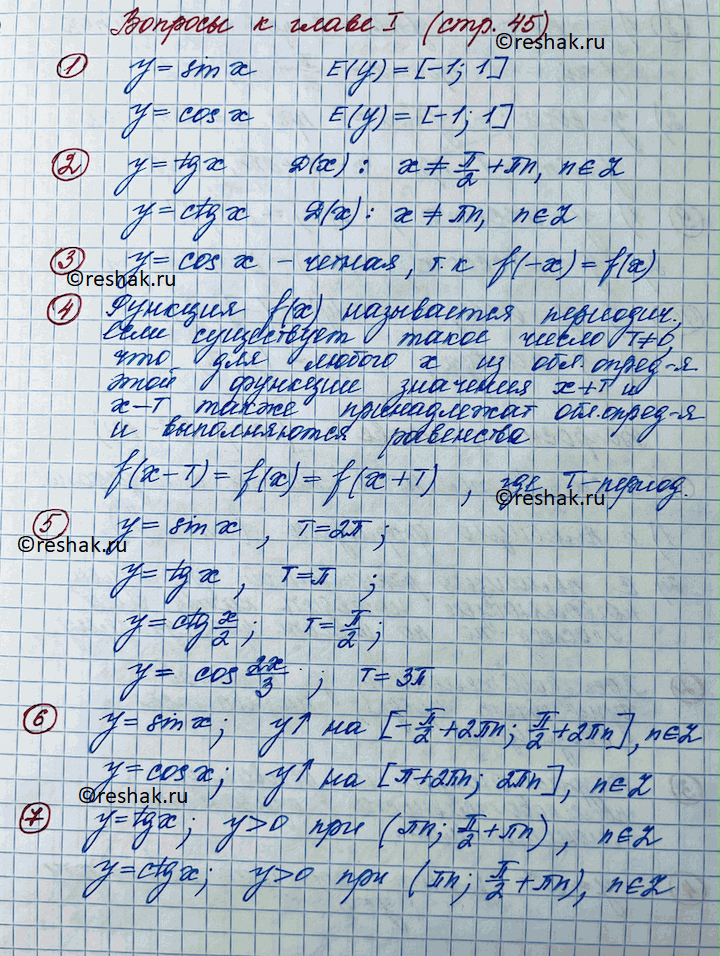 Вопросы к главе I (стр. 45)
©reshak.ru
① y = sin x E(y) = [-1; 1]
y = cos x E(y) = [-1; 1]
② y = tg x D(x): x ≠ π/2 + πn, n∈Z
y = ctg x D(x): x ≠ πn, n∈Z
③ y = cos x – четная, т.к f(-x) = f(x)
©reshak.ru
④ Функция f(x) называется периодич.,
если существует такое число T≠0,
что для любого x из обл. опред-я
этой функции значения x+T и
x-T также принадлежат обл. опред-я
и выполняются равенства
f(x-T) = f(x) = f(x+T), где T-период.
©reshak.ru
⑤ y = sin x, T = 2π;
©reshak.ru
y = tg x, T = π;
y = ctg x/2; T = π/2;
y = cos 2x/3; T = 3π
⑥ y = sin x; y↑ на [-π/2 + 2πn; π/2 + 2πn], n∈Z
y = cos x; y↑ на [π+2πn; 2πn], n∈Z
©reshak.ru
⑦ y = tg x; y>0 при (πn; π/2 + πn), n∈Z
y = ctg x; y>0 при (πn; π/2 + πn), n∈Z